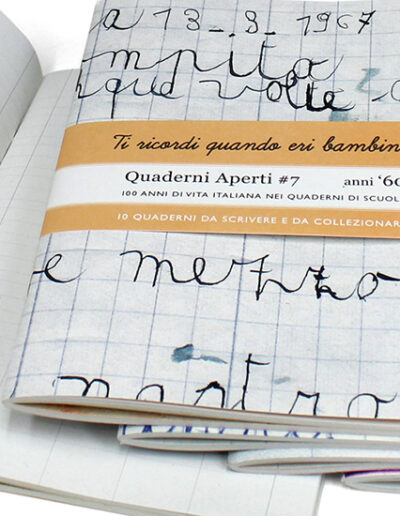 a 13-3-1967
mpita
que volte
Ti ricordi quando eri bambin
Quaderni Aperti #7 anni '60
100 ANNI DI VITA ITALIANA NEI QUADERNI DI SCUOL
10 QUADERNI DA SCRIVERE E DA COLLEZIONAR
e mezzo
nastro